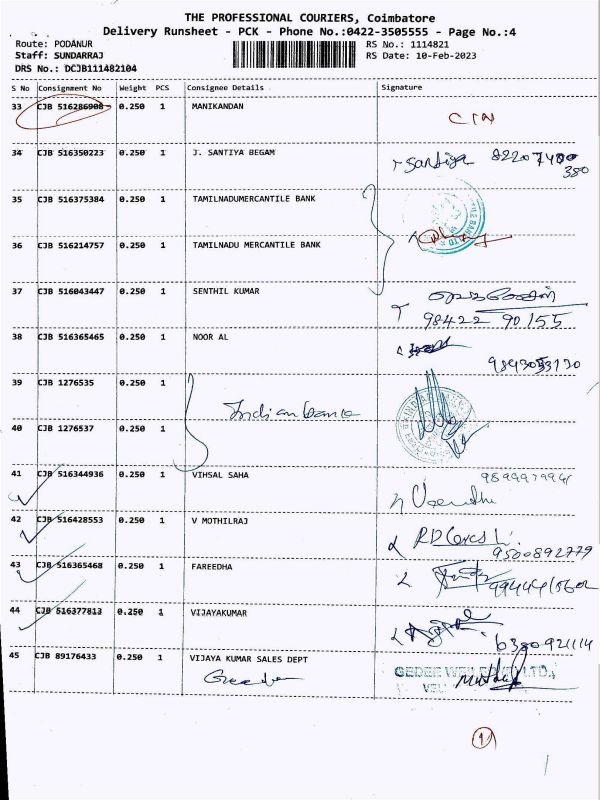 THE PROFESSIONAL COURIERS, Coimbatore
Delivery Runsheet - PCK - Phone No.:0422-3505555 - Page No.:4
Route: PODANUR
Staff: SUNDARRAJ
DRS No.: DCJB111482104
RS No.: 1114821
RS Date: 10-Feb-2023
S No Consignment No Weight PCS Consignee Details Signature
33 CJB 516286908 0.250 1 MANIKANDAN
34 CJB 516350223 0.250 1 J. SANTIYA BEGAM Santiya
35 CJB 516375384 0.250 1 TAMILNADUMERCANTILE BANK
36 CJB 516214757 0.250 1 TAMILNADU MERCANTILE BANK
37 CJB 516043447 0.250 1 SENTHIL KUMAR
98422 90155
38 CJB 516365465 0.250 1 NOOR AL
39 CJB 1276535 0.250 1
Indian bank
40 CJB 1276537 0.250 1
41 CJB 516344936 0.250 1 VIHSAL SAHA
42 CJB 516428553 0.250 1 V MOTHILRAJ
9500892779
43 CJB 516365468 0.250 1 FAREEDHA
44 CJB 516377813 0.250 1 VIJAYAKUMAR
6380921114
45 CJB 89176433 0.250 1 VIJAYA KUMAR SALES DEPT